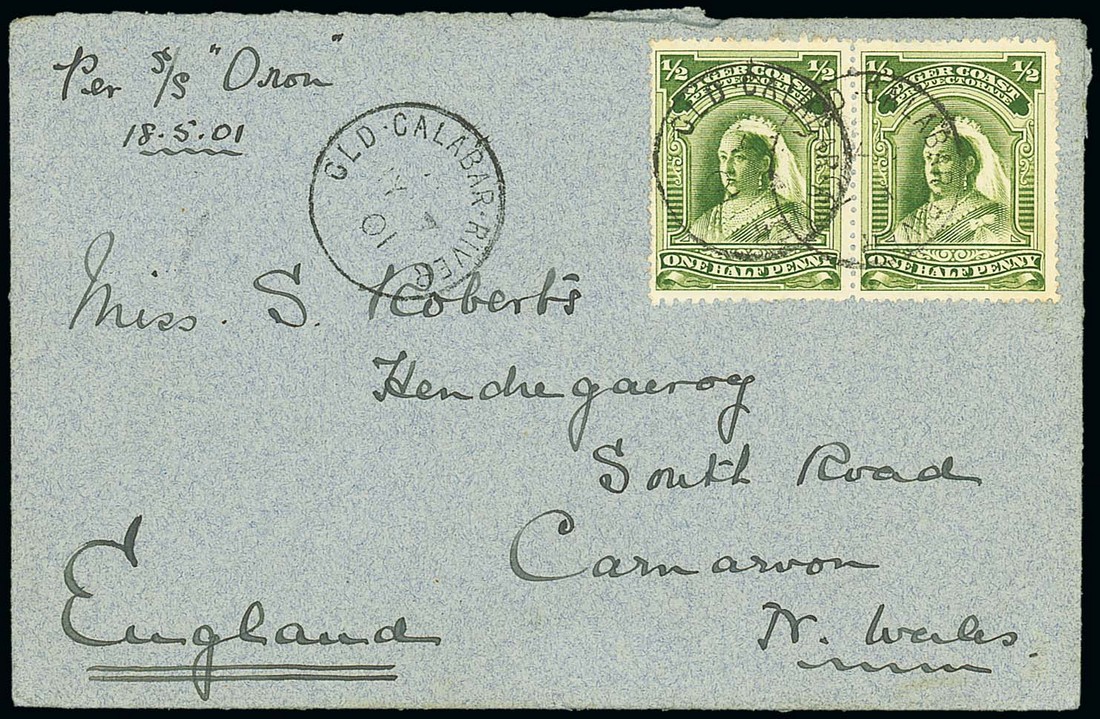 Per S/S "Oron"
18.5.01
OLD · CALABAR · RIVER
01
½ ½
NIGER COAST
PROTECTORATE
ONE HALF PENNY
½ ½
NIGER COAST
PROTECTORATE
ONE HALF PENNY
OLD · CALABAR
Miss. S. Roberts
South Road
Carnarvon
N. Wales.
England